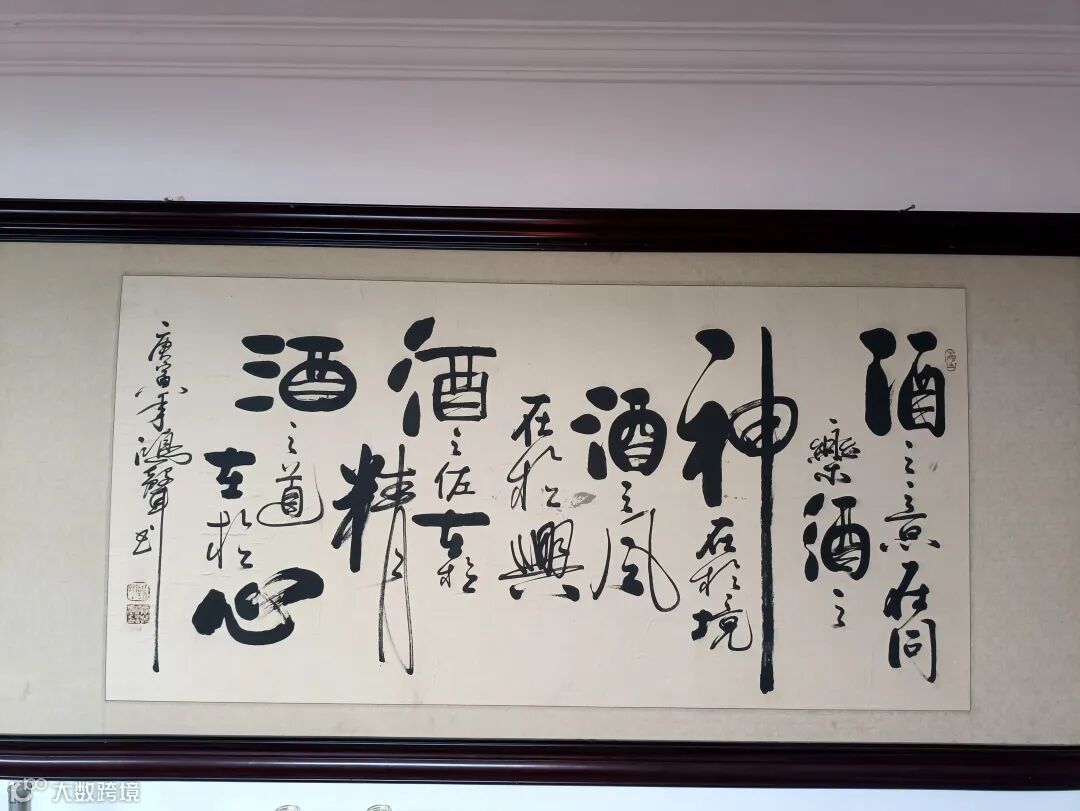 酒之意在同
樂酒之
神在於境
酒之風
在於興
酒之佐在於
精
酒之道
在於心
庚寅年鴻聲书
大数跨境